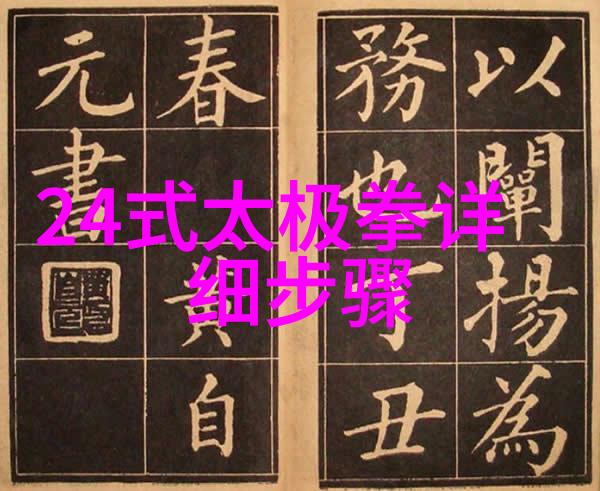 24式太极拳详
细步骤
以闡揚為
務也丁丑
春黃自
元書